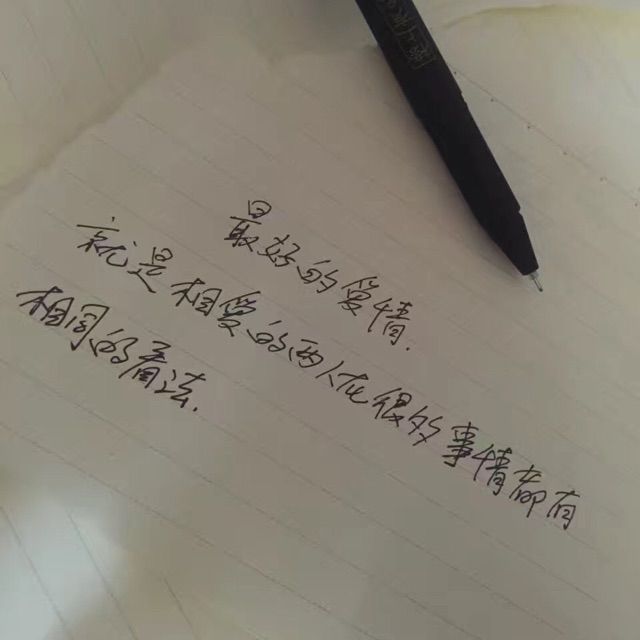 最好的爱情.
就是相爱的两人在很多事情都有
相同的看法.